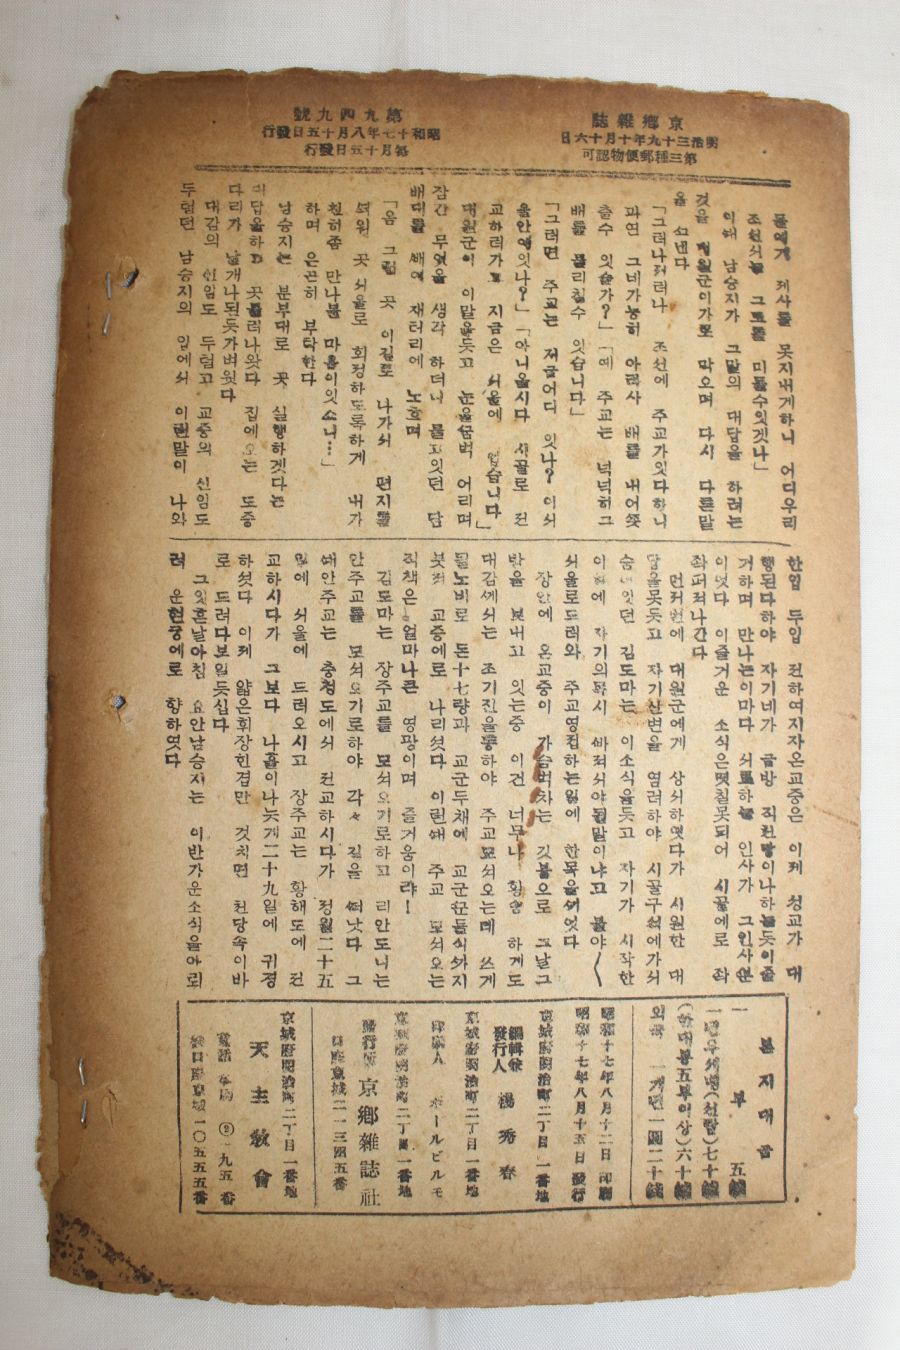 京鄕雜誌
明治三十九年十月十六日
第三種郵便物認可
第九四九號
昭和十七年八月十五日發行
每月十五日發行
물에게 제사를 못지내게하니 어디우리
조선서는 그교를 미들수잇겟나」
이때 남승지가 그말의 대답을 하려는
것을 대원군이가로 막으며 다시 다른말
을 꼬낸다
「그러나저러나 조선에 주교가잇다하니
과연 그네가능히 아라사 배를 내어쫏
츨수 잇슬가?」「네 주교는 넉넉히그
배를 물리칠수 잇습니다」
「그러면 주교는 지금어디 잇나? 이서
울안에잇나?」「아니올시다 시골로 전
교하러가고 지금은 서울에 업습니다」
대원군이 이말을듯고 눈을꿈벅 어리며
잠간 무엇을 생각 하더니 물고잇던 담
배대를 빼여 재터리에 노흐며
「음 그럼 곳 이길로 나가서 편지를
띄워 곳 서울로 회정하도록하게 내가
친히좀 만나볼 마음이잇스니…」
하며 은근히 부탁한다
남승지는 분부대로 곳 실행하겟다는
대답을하고 곳물러나왓다 집에오는 도중
다리가 날개나된듯가벼웟다
대감의 신임도 두텁고 교중의 신임도
두텁던 남승지의 입에서 이런말이 나와
한입 두입 전하여지자온교중은 이제 성교가 대
행된다하야 자기네가 금방 직천당이나하는듯이즐
거하며 만나는이마다 서로하는 인사가 그인사뿐
이엿다 이즐거운 소식은몃칠못되어 시골에로 좍
좌퍼저나간다
먼저번에 대원군에게 상서하엿다가 시원한 대
답을못듯고 자기신변을 염려하야 시골구석에가서
숨어잇던 김도마는 이소식을듯고 자기가 시작한
이일에 자기의목시 바저서야될말이냐고 불야~
서울로드러와 주교영접하는일에 한목을씨엇다
장안에 온교중이 가슴벅차는 깃붐으로 그날그
밤을 보내고 잇는중 이건 너무나 황송 하게도
대감께서는 조기진을통하야 주교모서오는데 쓰게
될노비로 돈十七량과 교군두채에 교군군들싹가지
붓처 교중에로 나리섯다 이런때 주교 모서오는
직책은 얼마나큰 영광이며 즐거움이랴!
김도마는 장주교를 모서오기로하고 리안도니는
안주교를 모서오기로하야 각々 길을 떠낫다 그
때안주교는 충청도에서 전교하시다가 정월二十五
일에 서울에 드러오시고 장주교는 황해도에 전
교하시다가 그보다 나흘이나늣게二十九일에 귀경
하섯다 이제 얇은휘장한겹만 것치면 천당속이바
로 드려다보일듯십다
그잇흔날아침 요안남승지는 이반가운소식을아뢰
려 운현궁에로 향하엿다
본지대금
一部 五錢
一년우세병(선람)七十錢
(한대봉五부이상)六十錢
외국 一개년一圓二十錢
昭和十七年八月十二日 印刷
昭和十七年八月十五日 發行
京城府明治町二丁目一番地
編輯兼
發行人 楊秀春
京城府明治町二丁目一番地
印刷人 ポールビルモ
京城府明治町二丁目一番地
發行所 京鄕雜誌社
口座京城二一三四五番
京城府明治町二丁目一番地
天主敎會